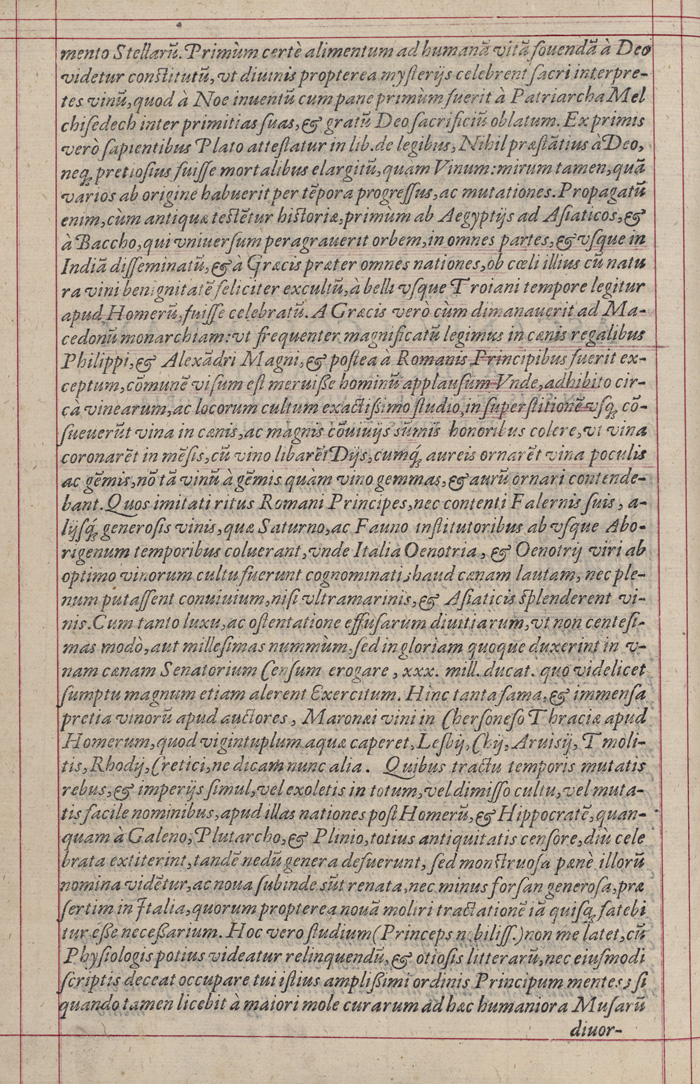 mento Stellarũ. Primùm certè alimentum ad humanã vitã fouendã à Deo
videtur constitutũ, vt diuinis propterea mysterijs celebrent sacri interpre-
tes vinũ, quod à Noe inuentũ cum pane primùm fuerit à Patriarcha Mel
chisedech inter primitias suas, & gratũ Deo sacrificiũ oblatum. Ex primis
verò sapientibus Plato attestatur in lib. de legibus, Nihil præstãtius à Deo,
neq; pretiosius fuisse mortalibus elargitũ, quam Vinum: mirum tamen, quã
varios ab origine habuerit per tẽpora progressus, ac mutationes. Propagatũ
enim, cùm antiquæ testẽtur historiæ, primum ab Aegyptijs ad Asiaticos, &
à Baccho, qui vniuersum peragrauerit orbem, in omnes partes, & vsque in
Indiã disseminatũ, & à Græcis præter omnes nationes, ob cœli illius cũ natu
ra vini benignitatẽ feliciter excultũ, à belli vsque Troiani tempore legitur
apud Homerũ, fuisse celebratũ. A Græcis verò cùm dimanauerit ad Ma-
cedonũ monarchiam: vt frequenter magnificatũ legimus in cænis regalibus
Philippi, & Alexãdri Magni, & postea à Romanis Principibus fuerit ex-
ceptum, cõmunẽ visum est meruisse hominũ applausum Vnde, adhibito cir-
cà vinearum, ac locorum cultum exactissimo studio, in superstitionẽ vsq; cõ-
sueuerũt vina in cænis, ac magnis cõuiuijs sũmis honoribus colere, vt vina
coronarẽt in mẽsis, cũ vino libarẽt Dijs, cumq; aureis ornarẽt vina poculis
ac gẽmis, nõ tã vinũ à gẽmis quàm vino gemmas, & aurũ ornari contende-
bant. Quos imitati ritus Romani Principes, nec contenti Falernis suis, a-
lijsq; generosis vinis, quæ Saturno, ac Fauno institutoribus ab vsque Abo-
rigenum temporibus coluerant, vnde Italia Oenotria, & Oenotrij viri ab
optimo vinorum cultu fuerunt cognominati, haud cænam lautam, nec ple-
num putassent conuiuium, nisi vltramarinis, & Asiaticis splenderent vi-
nis. Cum tanto luxu, ac ostentatione effusarum diuitiarum, vt non centesi-
mas modò, aut millesimas nummùm, sed in gloriam quoque duxerint in v-
nam cænam Senatorium Censum erogare, xxx. mill. ducat. quo videlicet
sumptu magnum etiam alerent Exercitum. Hinc tanta fama, & immensa
pretia vinorũ apud auctores, Maronæi vini in Chersoneso Thraciæ apud
Homerum, quod vigintuplum aquæ caperet, Lesbij, Chij, Aruisij, Tmoli-
tis, Rhodij, Cretici, ne dicam nunc alia. Quibus tractu temporis mutatis
rebus, & imperijs simul, vel exoletis in totum, vel dimisso cultu, vel muta-
tis facile nominibus, apud illas nationes post Homerũ, & Hippocratẽ, quan-
quam à Galeno, Plutarcho, & Plinio, totius antiquitatis censore, diù cele
brata extiterint, tandẽ nedũ genera defuerunt, sed monstruosa pænè illorũ
nomina vidẽtur, ac noua subinde sũt renata, nec minus forsan generosa, præ
sertim in Italia, quorum propterea nouã moliri tractationẽ iã quisq; fatebi
tur esse necessarium. Hoc vero studium (Princeps nobiliss.) non me latet, cũ
Physiologis potius videatur relinquendũ, & otiosis litterarũ, nec eiusmodi
scriptis deceat occupare tui istius amplissimi ordinis Principum mentes; si
quando tamen licebit à maiori mole curarum ad hæc humaniora Musarũ
diuor-